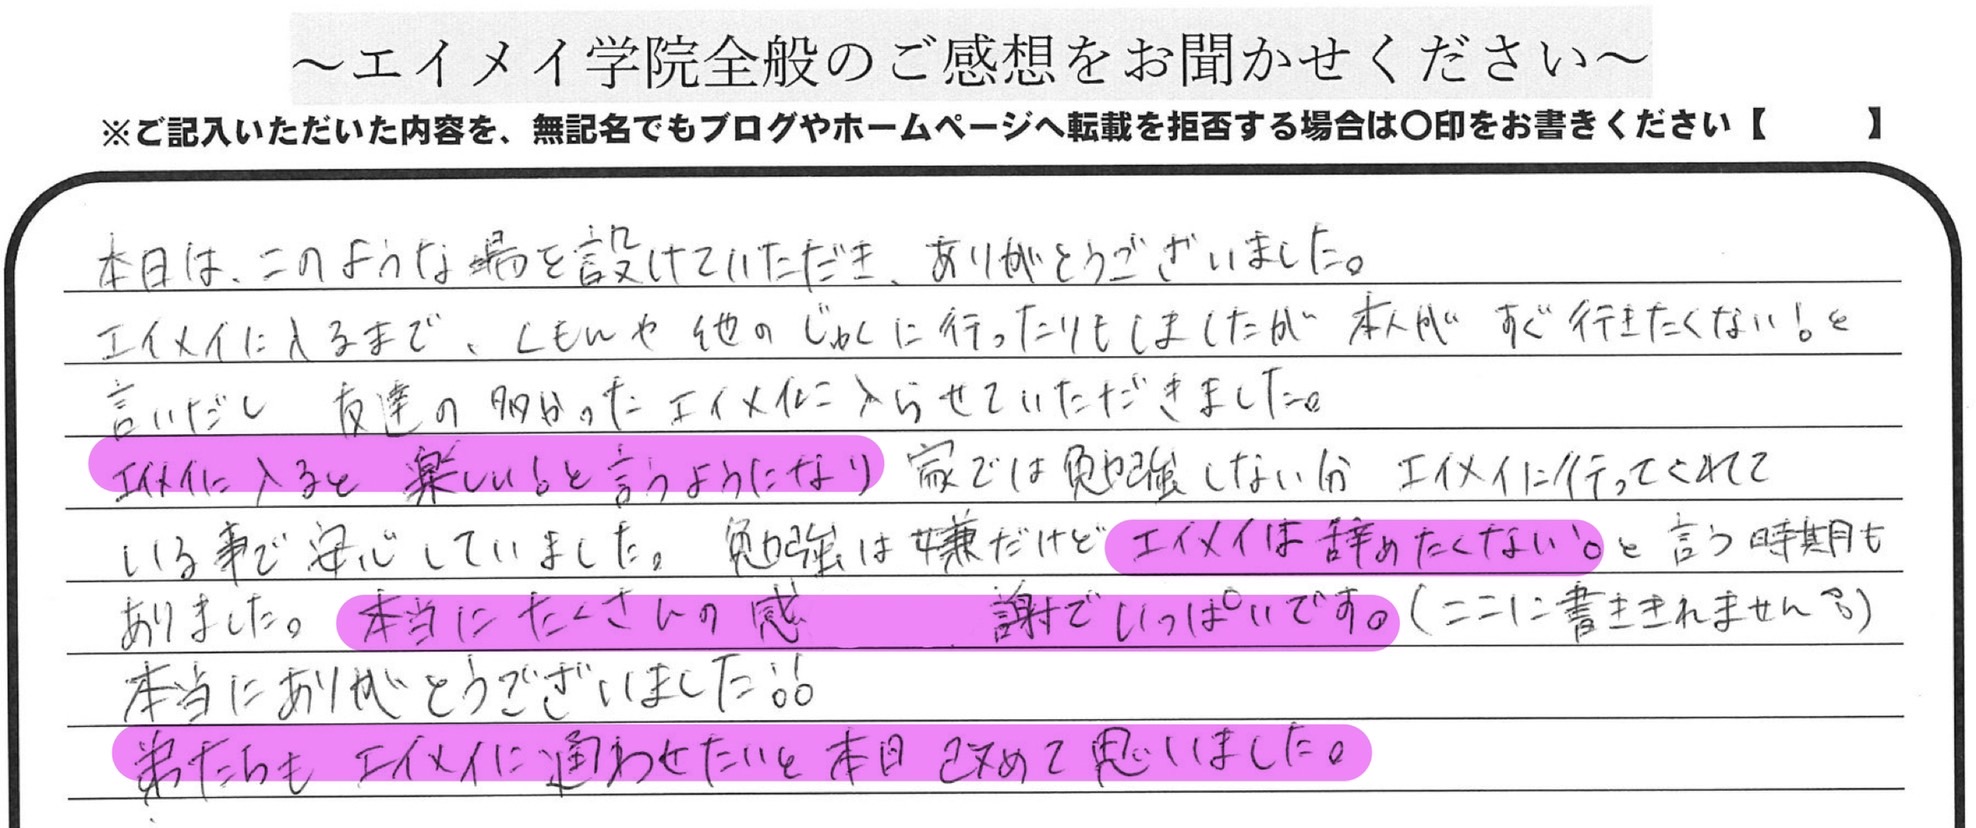 ～エイメイ学院全般のご感想をお聞かせください～
※ご記入いただいた内容を、無記名でもブログやホームページへ転載を拒否する場合は〇印をお書きください【　　　】
本日は、このような場を設けていただき、ありがとうございました。
エイメイに入るまで、くもんや他のじゅくに行ったりもしましたが 本人が すぐ行きたくない!と
言いだし 友達の多かったエイメイに入らせていただきました。
エイメイに入ると 楽しい!と言うようになり 家では勉強しない分 エイメイに行ってくれて
いる事で安心していました。 勉強は嫌だけど エイメイは辞めたくない!。と言う時期も
ありました。 本当にたくさんの感　謝でいっぱいです。(ここに書ききれません!!)
本当にありがとうございました!!
弟たちも エイメイに通わせたいと本日 改めて思いました。